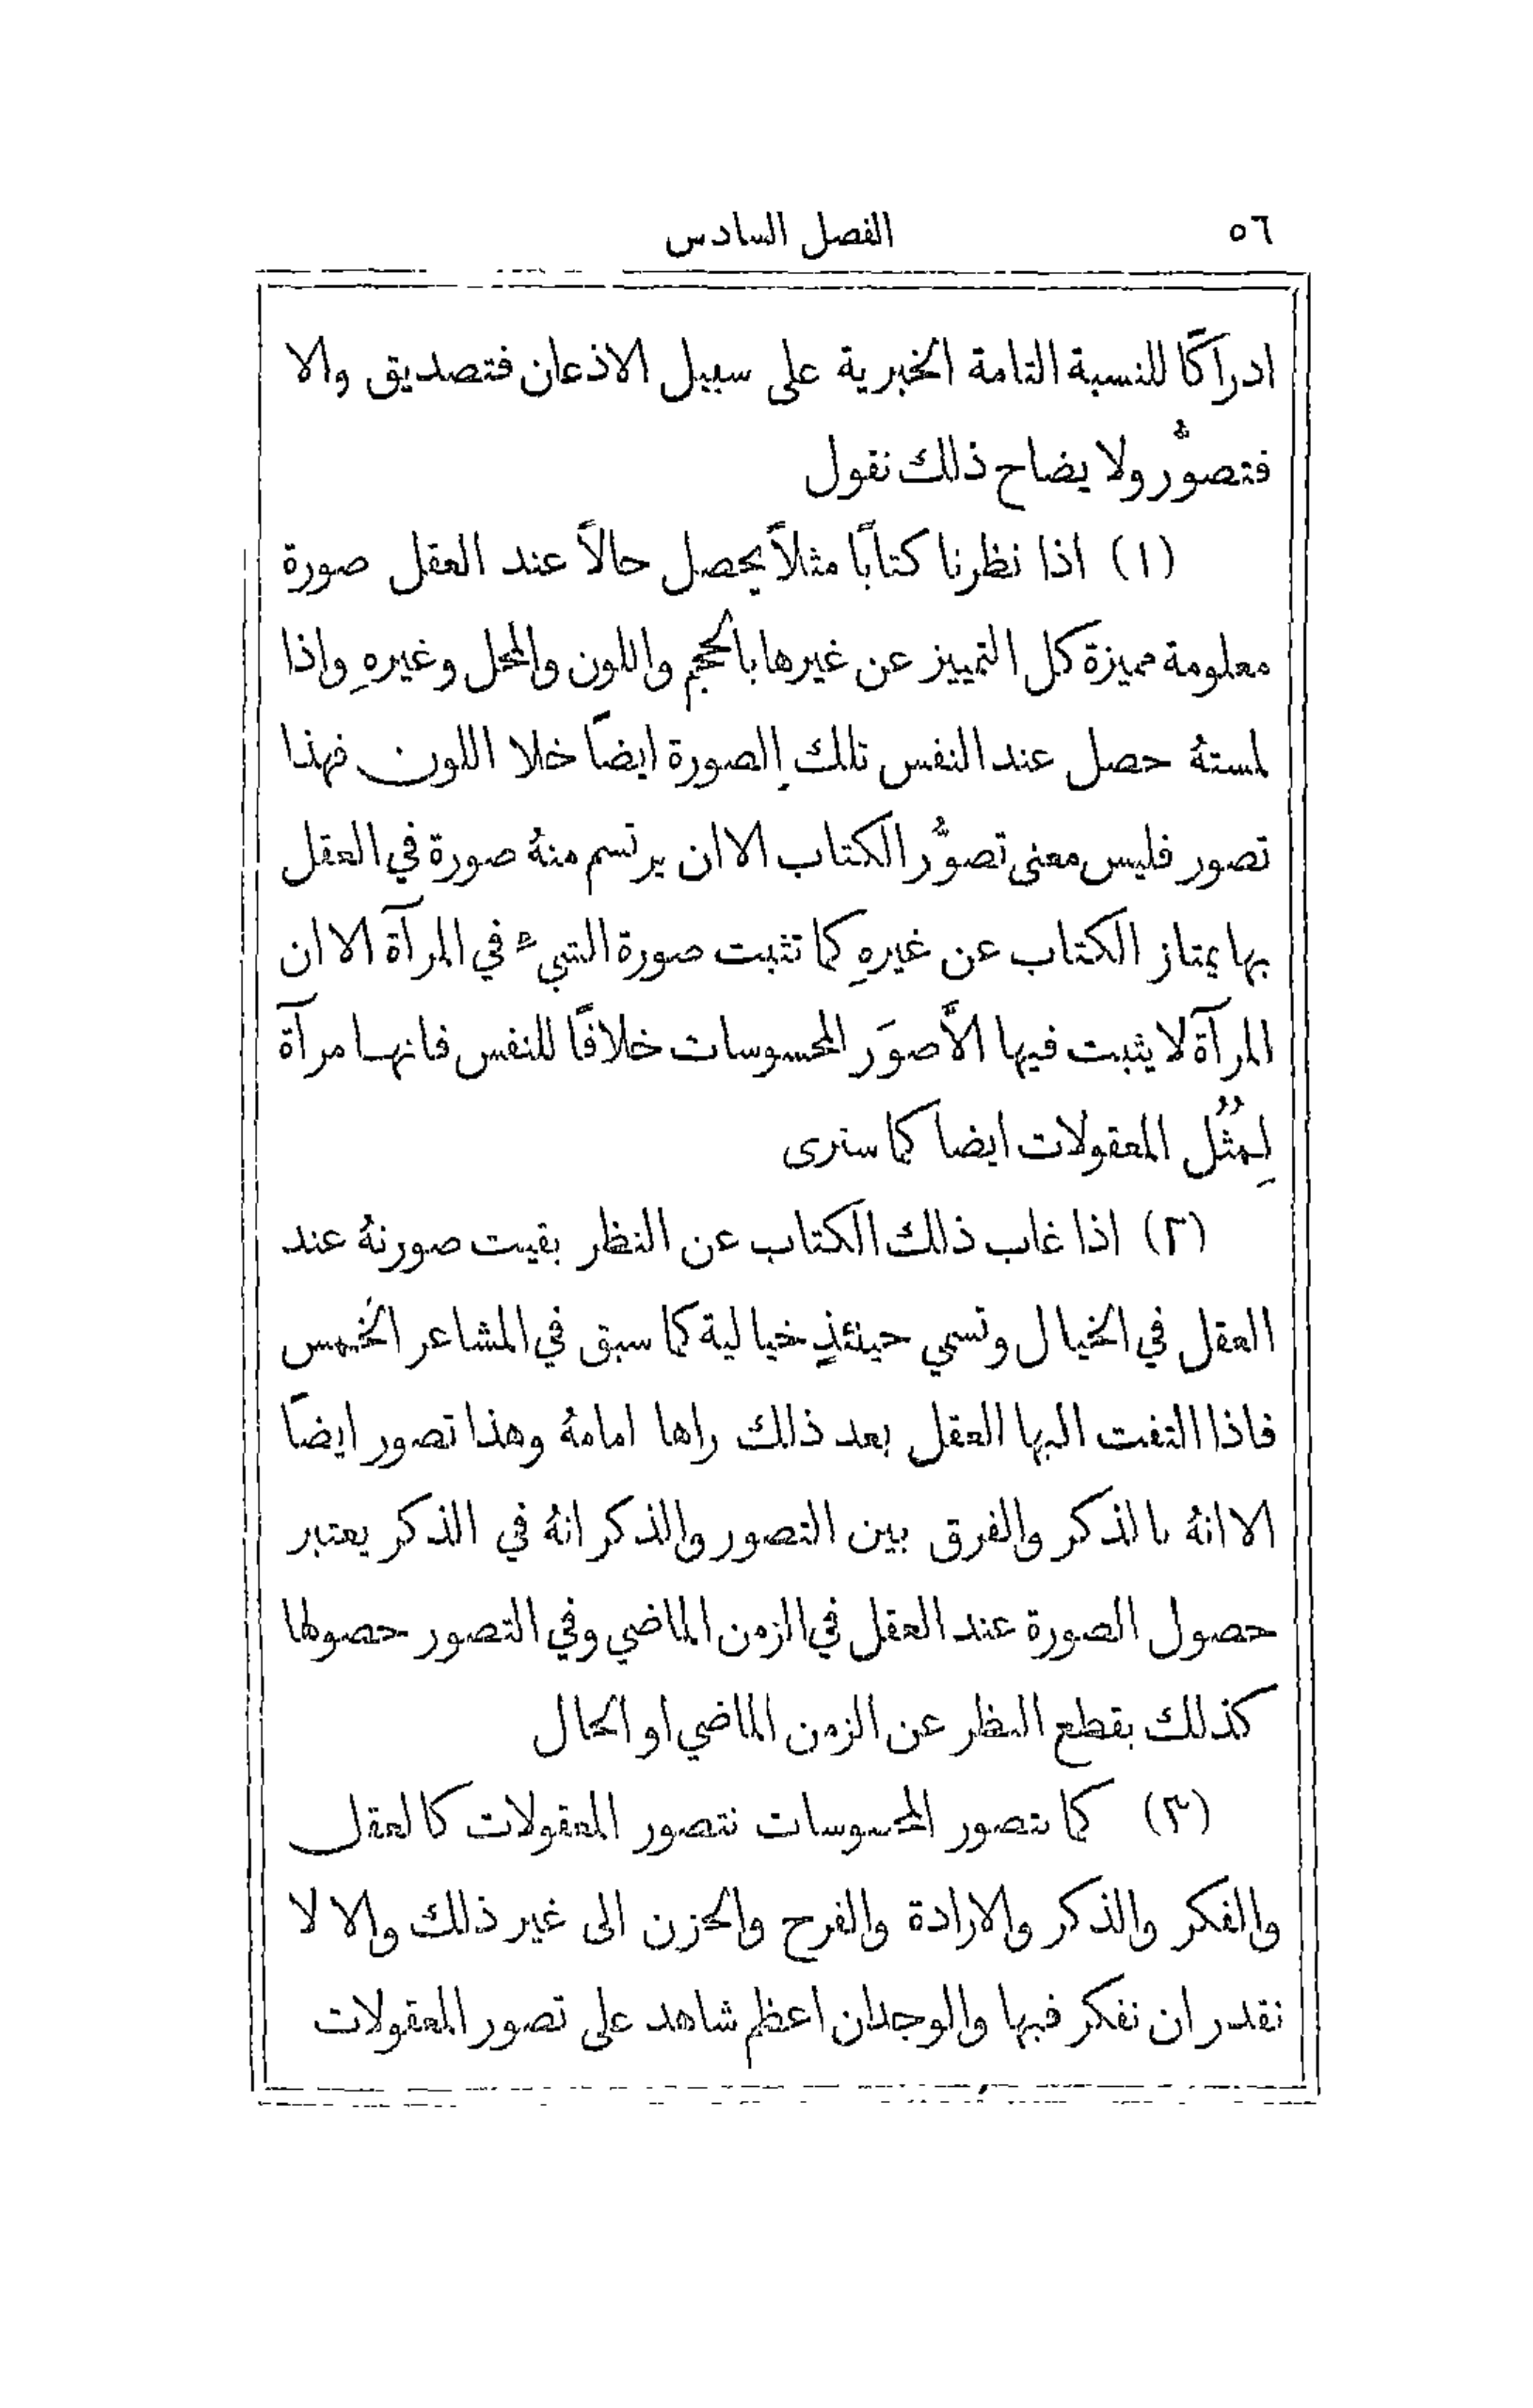 ٥٦ الفصل السادس
ادراكًا للنسبة التامة الخبرية على سبيل الاذعان فتصديق والا
فتصوُّر ولا يضاح ذلك نقول
(١) اذا نظرنا كتابًا مثلاً يحصل حالاً عند العقل صورة
معلومة مميزة كل التمييز عن غيرها بالحجم واللون والمحل وغيرهِ واذا
لمستهُ حصل عند النفس تلك الصورة ايضاً خلا اللون فهذا
تصور فليس معنى تصوُّر الكتاب الا ان يرتسم منهُ صورة في العقل
بها يمتاز الكتاب عن غيرهِ كما تثبت صورة الشيء في المرآة الا ان
المرآة لا يثبت فيها الاَّ صوَر المحسوسات خلافًا للنفس فانها مرآة
لِمُثُل المعقولات ايضا كما سترى
(٢) اذا غاب ذلك الكتاب عن النظر بقيت صورتهُ عند
العقل في الخيال وتسمي حينئذٍ خيالية كما سبق في المشاعر الخمس
فاذا التفت اليها العقل بعد ذلك راها امامهُ وهذا تصور ايضاً
الا انهُ بالذكر والفرق بين التصور والذكر انهُ في الذكر يعتبر
حصول الصورة عند العقل في الزمن الماضي وفي التصور حصولها
كذلك بقطع النظر عن الزمن الماضي او الحال
(٣) كما نتصور المحسوسات نتصور المعقولات كالعقل
والفكر والذكر والارادة والفرح والحزن الى غير ذلك والا لا
نقدر ان نفكر فيها والوجدان اعظم شاهد على تصور المعقولات